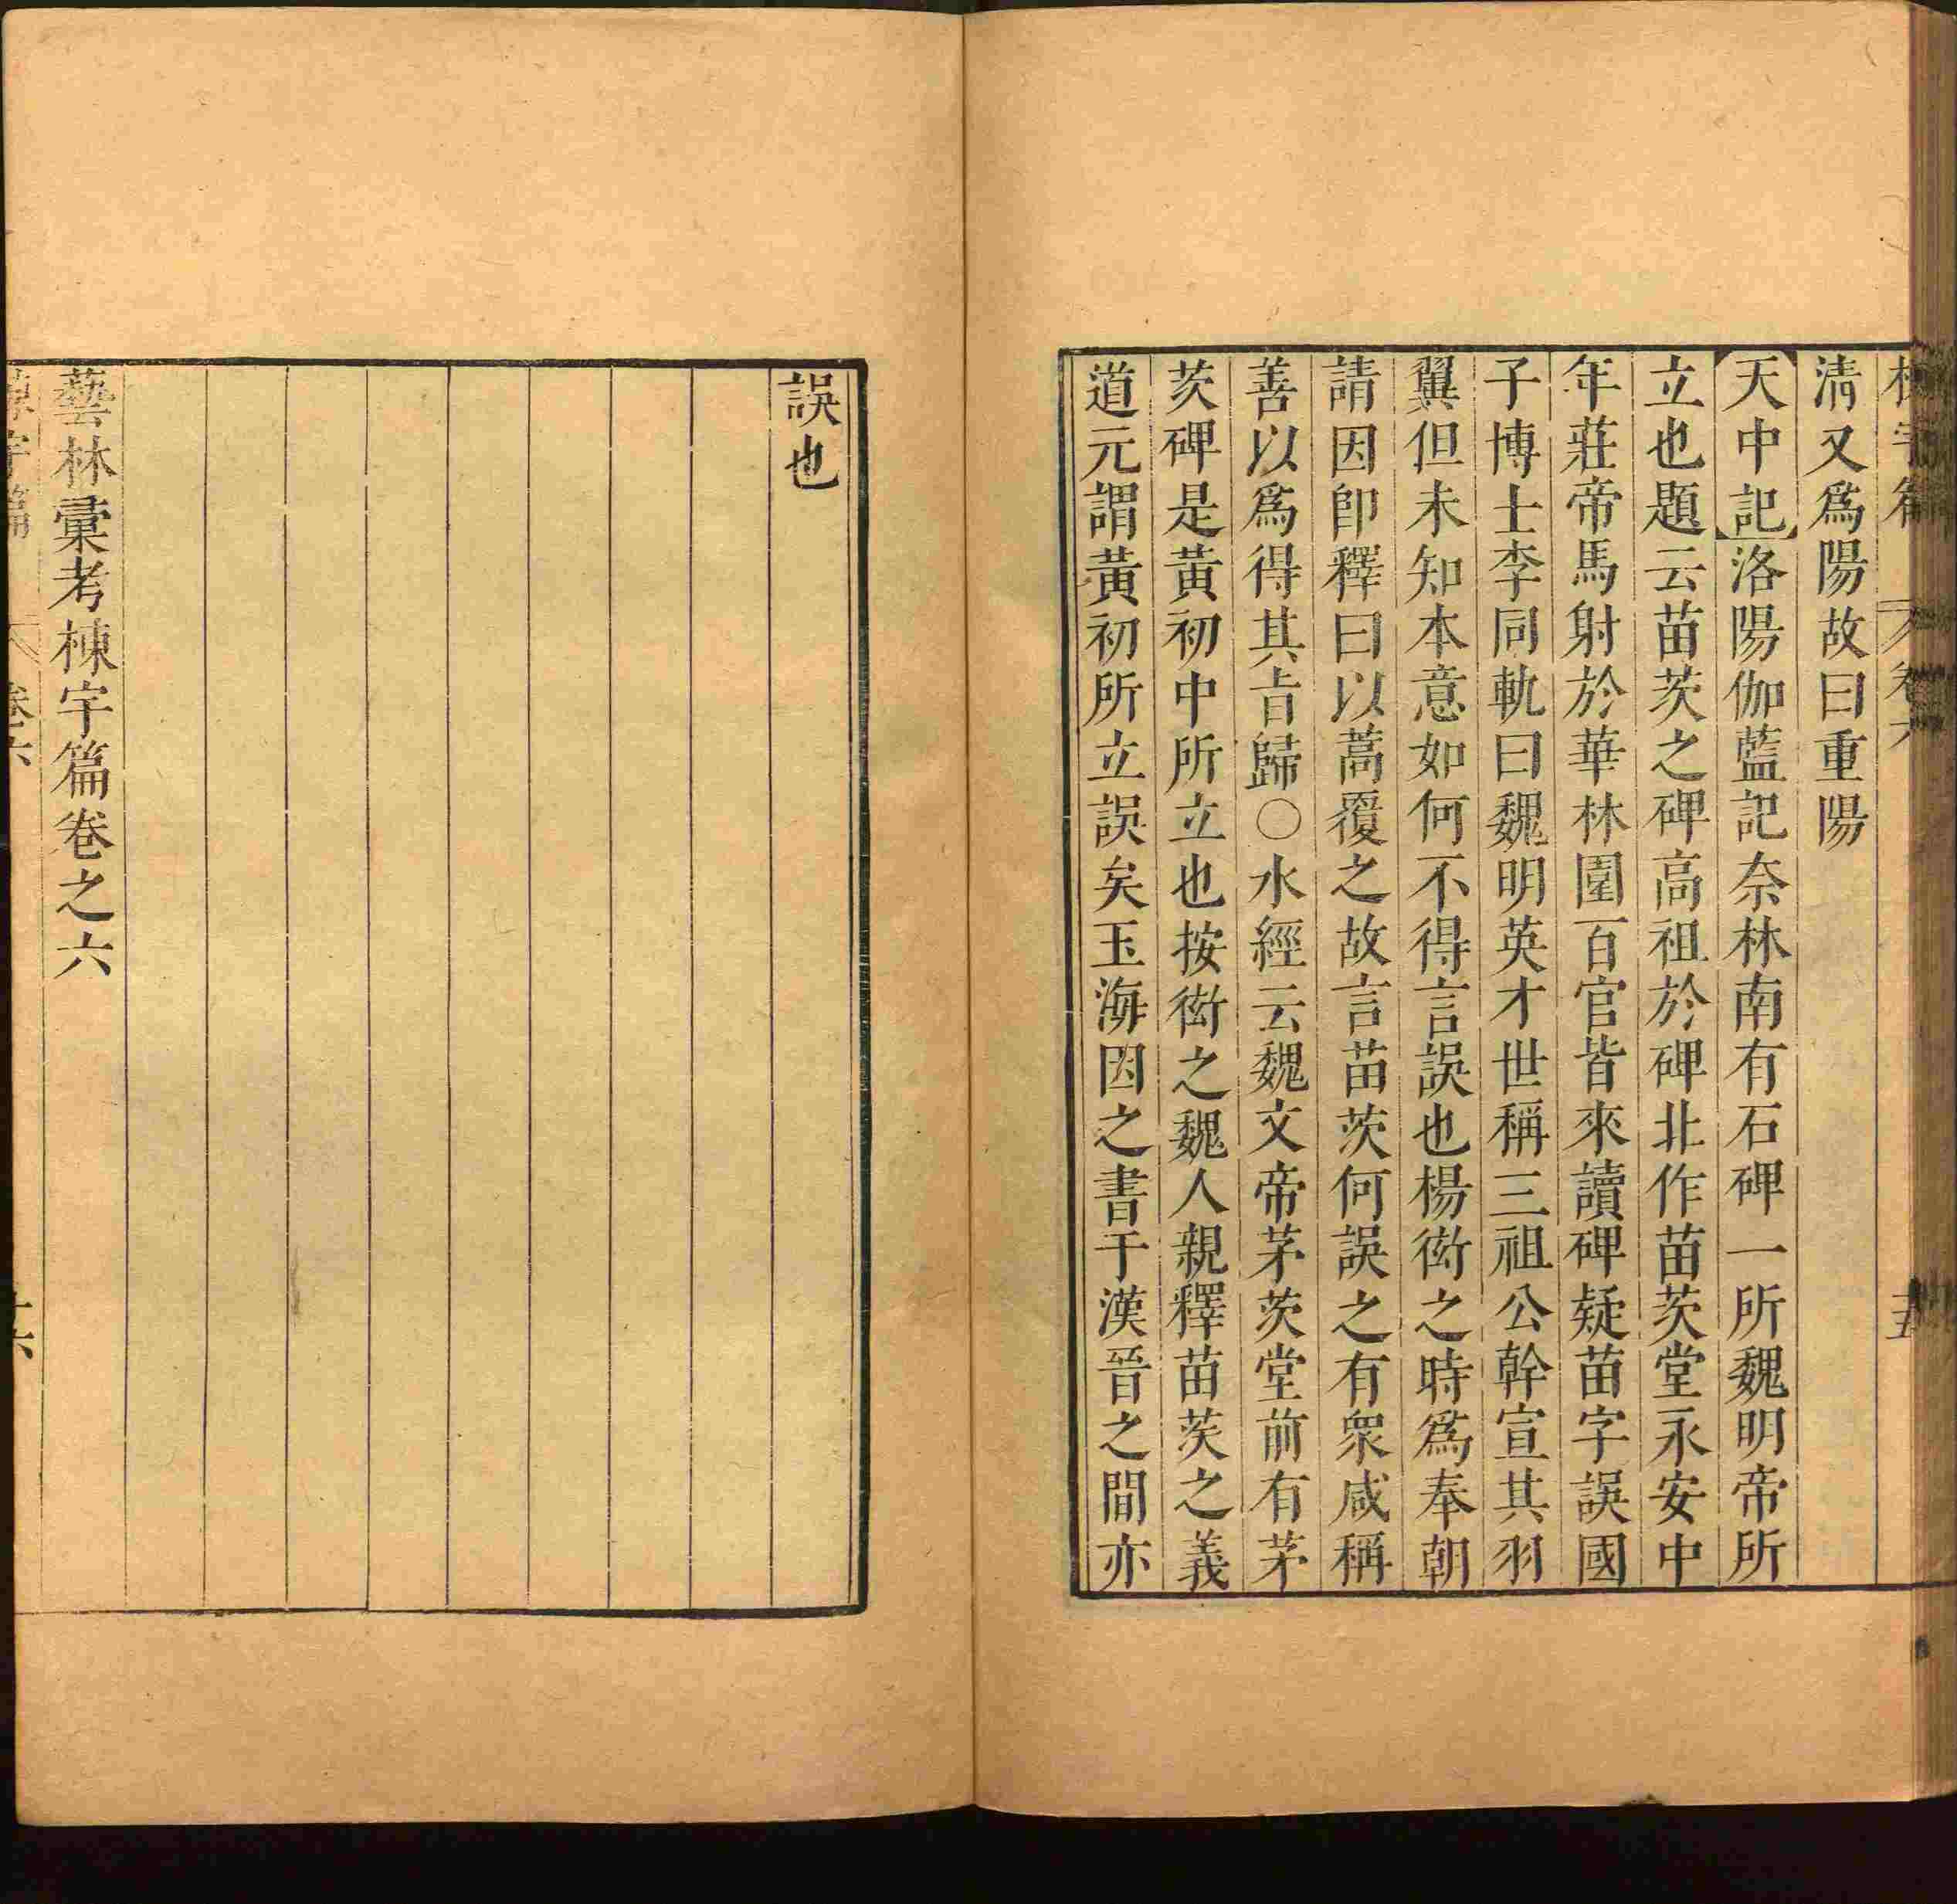 清又爲陽故曰重陽
天中記洛陽伽藍記奈林南有石碑一所魏明帝所
立也題云苗茨之碑高祖於碑北作苗茨堂永安中
年莊帝馬射於華林園百官皆來讀碑疑苗字誤國
子博士李同軌曰魏明英才世稱三祖公幹宣其羽
翼但未知本意如何不得言誤也楊衒之時爲奉朝
請因卽釋曰以蒿覆之故言苗茨何誤之有衆咸稱
善以爲得其旨歸○水經云魏文帝茅茨堂前有茅
茨碑是黃初中所立也按衒之魏人親釋苗茨之義
道元謂黃初所立誤矣玉海因之書于漢晉之間亦
誤也
藝林彙考棟宇篇卷之六
棟宇篇 卷六 十六